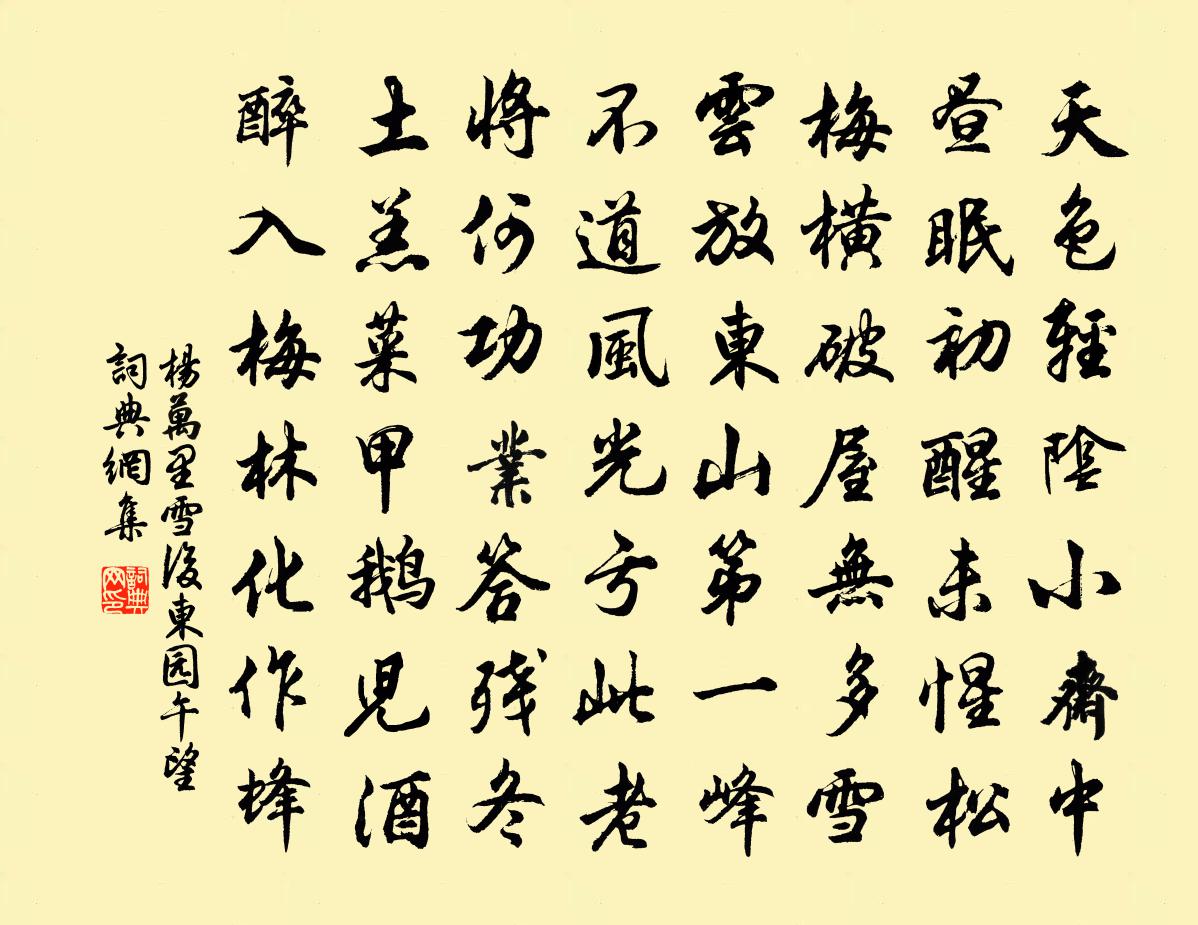 天色輕陰小齋中
昼眠初醒未惺松
梅橫破屋無多雪
雲放東山第一峰
不道風光亏此老
將何功業答残冬
土羔菜甲鹅児酒
醉入梅林化作蜂
楊萬里雪後東园午望
詞典網集
詞典网印